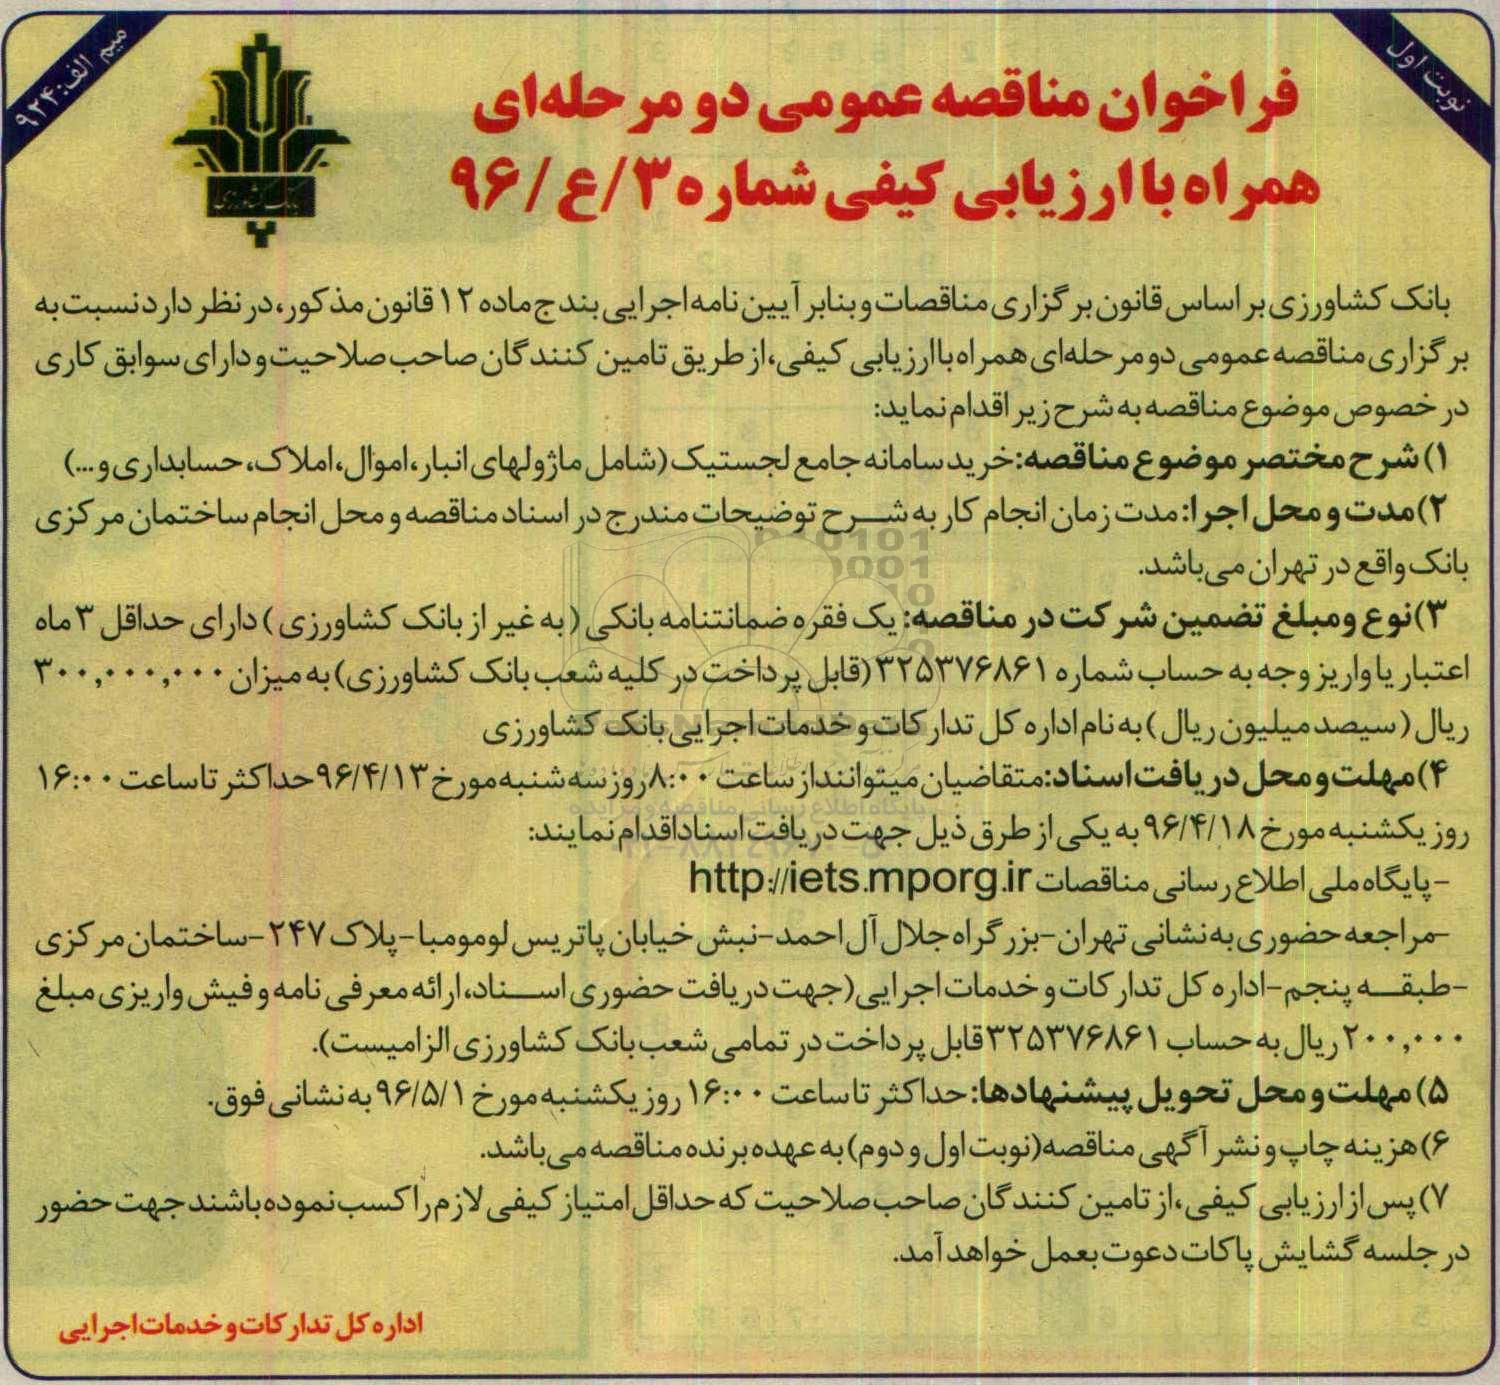 نوبت اول
میم الف:۹۲۴
بانک کشاورزی
فراخوان مناقصه عمومی دو مرحله‌ای
همراه با ارزیابی کیفی شماره ۳/ع/۹۶
بانک کشاورزی براساس قانون برگزاری مناقصات و بنابر آیین نامه اجرایی بند ج ماده ۱۲ قانون مذکور، در نظر دارد نسبت به
برگزاری مناقصه عمومی دو مرحله‌ای همراه با ارزیابی کیفی، از طریق تامین کنندگان صاحب صلاحیت و دارای سوابق کاری
در خصوص موضوع مناقصه به شرح زیر اقدام نماید:
۱) شرح مختصر موضوع مناقصه: خرید سامانه جامع لجستیک (شامل ماژولهای انبار، اموال، املاک، حسابداری و ...)
۲) مدت و محل اجرا: مدت زمان انجام کار به شرح توضیحات مندرج در اسناد مناقصه و محل انجام ساختمان مرکزی
بانک واقع در تهران می‌باشد.
۳) نوع و مبلغ تضمین شرکت در مناقصه: یک فقره ضمانتنامه بانکی ( به غیر از بانک کشاورزی ) دارای حداقل ۳ ماه
اعتبار یا واریز وجه به حساب شماره ۳۲۵۳۷۶۸۶۱ (قابل پرداخت در کلیه شعب بانک کشاورزی) به میزان ۳۰۰,۰۰۰,۰۰۰
ریال ( سیصد میلیون ریال ) به نام اداره کل تدارکات و خدمات اجرایی بانک کشاورزی
۴) مهلت و محل دریافت اسناد: متقاضیان میتوانند از ساعت ۸:۰۰ روز سه شنبه مورخ ۹۶/۴/۱۳ حداکثر تا ساعت ۱۶:۰۰
روز یکشنبه مورخ ۹۶/۴/۱۸ به یکی از طرق ذیل جهت دریافت اسناد اقدام نمایند:
- پایگاه ملی اطلاع رسانی مناقصات http://iets.mporg.ir
-مراجعه حضوری به نشانی تهران-بزرگراه جلال آل احمد-نبش خیابان پاتریس لومومبا-پلاک ۲۴۷-ساختمان مرکزی
-طبقه پنجم-اداره کل تدارکات و خدمات اجرایی (جهت دریافت حضوری اسناد، ارائه معرفی نامه و فیش واریزی مبلغ
۲۰۰,۰۰۰ ریال به حساب ۳۲۵۳۷۶۸۶۱ قابل پرداخت در تمامی شعب بانک کشاورزی الزامیست).
۵) مهلت و محل تحویل پیشنهادها: حداکثر تا ساعت ۱۶:۰۰ روز یکشنبه مورخ ۹۶/۵/۱ به نشانی فوق.
۶) هزینه چاپ و نشر آگهی مناقصه (نوبت اول و دوم) به عهده برنده مناقصه می‌باشد.
۷) پس از ارزیابی کیفی، از تامین کنندگان صاحب صلاحیت که حداقل امتیاز کیفی لازم را کسب نموده باشند جهت حضور
در جلسه گشایش پاکات دعوت بعمل خواهد آمد.
اداره کل تدارکات و خدمات اجرایی